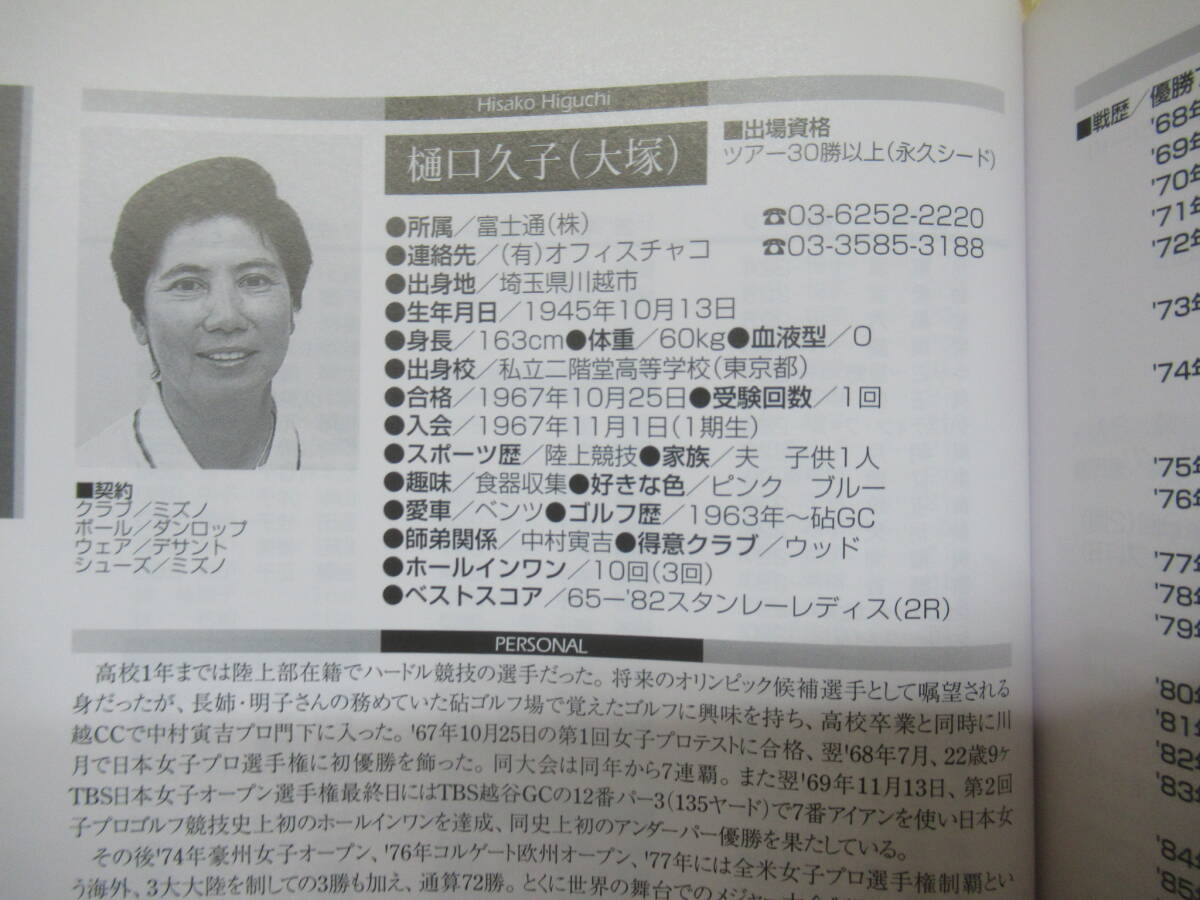 Hisako Higuchi
樋口久子(大塚)
■出場資格
ツアー30勝以上(永久シード)
●所属/富士通(株) ☎03-6252-2220
●連絡先/(有)オフィスチャコ ☎03-3585-3188
●出身地/埼玉県川越市
●生年月日/1945年10月13日
●身長/163cm●体重/60kg●血液型/O
●出身校/私立二階堂高等学校(東京都)
●合格/1967年10月25日●受験回数/1回
●入会/1967年11月1日(1期生)
●スポーツ歴/陸上競技●家族/夫 子供1人
●趣味/食器収集●好きな色/ピンク ブルー
●愛車/ベンツ●ゴルフ歴/1963年〜砧GC
●師弟関係/中村寅吉●得意クラブ/ウッド
●ホールインワン/10回(3回)
●ベストスコア/65ー'82スタンレーレディス(2R)
■契約
クラブ/ミズノ
ボール/ダンロップ
ウェア/デサント
シューズ/ミズノ
PERSONAL
高校1年までは陸上部在籍でハードル競技の選手だった。将来のオリンピック候補選手として嘱望される
身だったが、長姉・明子さんの務めていた砧ゴルフ場で覚えたゴルフに興味を持ち、高校卒業と同時に川
越CCで中村寅吉プロ門下に入った。'67年10月25日の第1回女子プロテストに合格、翌'68年7月、22歳9ヶ
月で日本女子プロ選手権に初優勝を飾った。同大会は同年から7連覇。また翌'69年11月13日、第2回
TBS日本女子オープン選手権最終日にはTBS越谷GCの12番パー3(135ヤード)で7番アイアンを使い日本女
子プロゴルフ競技史上初のホールインワンを達成、同史上初のアンダーパー優勝を果たしている。
その後'74年豪州女子オープン、'76年コルゲート欧州オープン、'77年には全米女子プロ選手権制覇とい
う海外、3大大陸を制しての3勝も加え、通算72勝。とくに世界の舞台でのメジャー
■戦歴/優勝
'68年
'69年
'70年
'71年
'72年
'73年
'74年
'75年
'76年
'77年
'78年
'79年
'80年
'81年
'82年
'83年
'84年
'85年